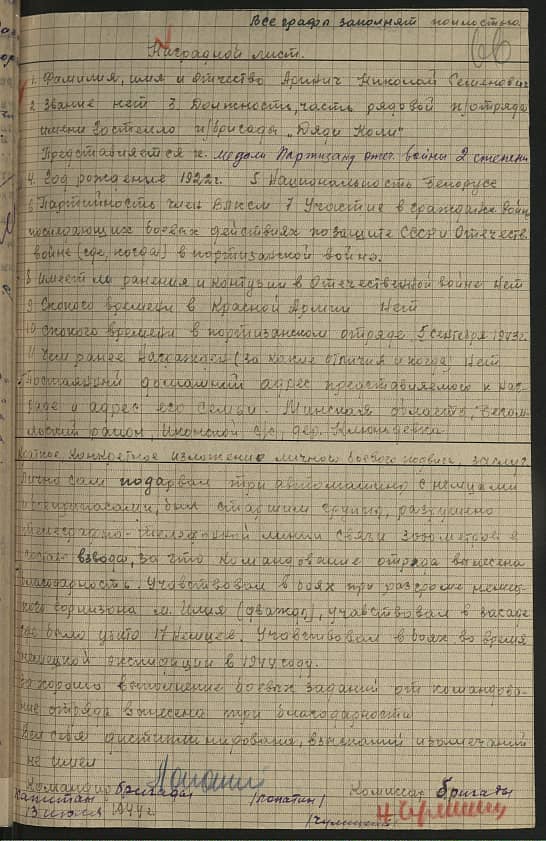 Все графы заполнят полностью
66
Наградной лист.
1. Фамилия, имя и отчество Аринич Николай Семенович
2. Звание нет 3. Должность, часть рядовой п/отряда
имени Гостелло п/бригады „Дяди Коли"
Представляется к. медали Партизану отеч. войны 2 степени
4. Год рождения 1922 г. 5. Национальность Белорус
6. Партийность член ВЛКСМ 7 Участие в гражданск войне
последующих боевых действиях по защите СССР и Отечеств.
войне (где, когда) в партизанской войне.
8 Имеет ли ранения и контузии в Отечественной войне Нет
9 Скокого времени в Красной Армии Нет
10 Скокого времени в партизанском отряде 5 сентября 1943 г.
11 Чем ранее награжден (за какие отличия и когда) Нет
Постоянный домашний адрес представляемого к наг-
раде и адрес его семьи. Минская область,
район, с/с, дер.
Краткое, конкретное изложение личного боевого подвига,
Лично сам подорвал три автомашины с немцами
и был старшим группы, разрушено
телеграфно-телефонной линии связи 300 метров в
составе взвода, за что командование отряда вынесена
благодарность. Учавствовал в боях при разгроме немец-
кого гарнизона м. Илия (дважды), учавствовал в засаде
где было убито 17 немцев. Учавствовал в боях во время
немецкой экспедиции в 1944 году.
За хорошо выполнение боевых заданий от командова-
ние отряда вынесено три благодарности
Вел себя дисциплинировано, взысканий и замечаний
не имел
Командир бригады Комиссар бригады
капитан /Лопатин/
13 июля 1944 г.